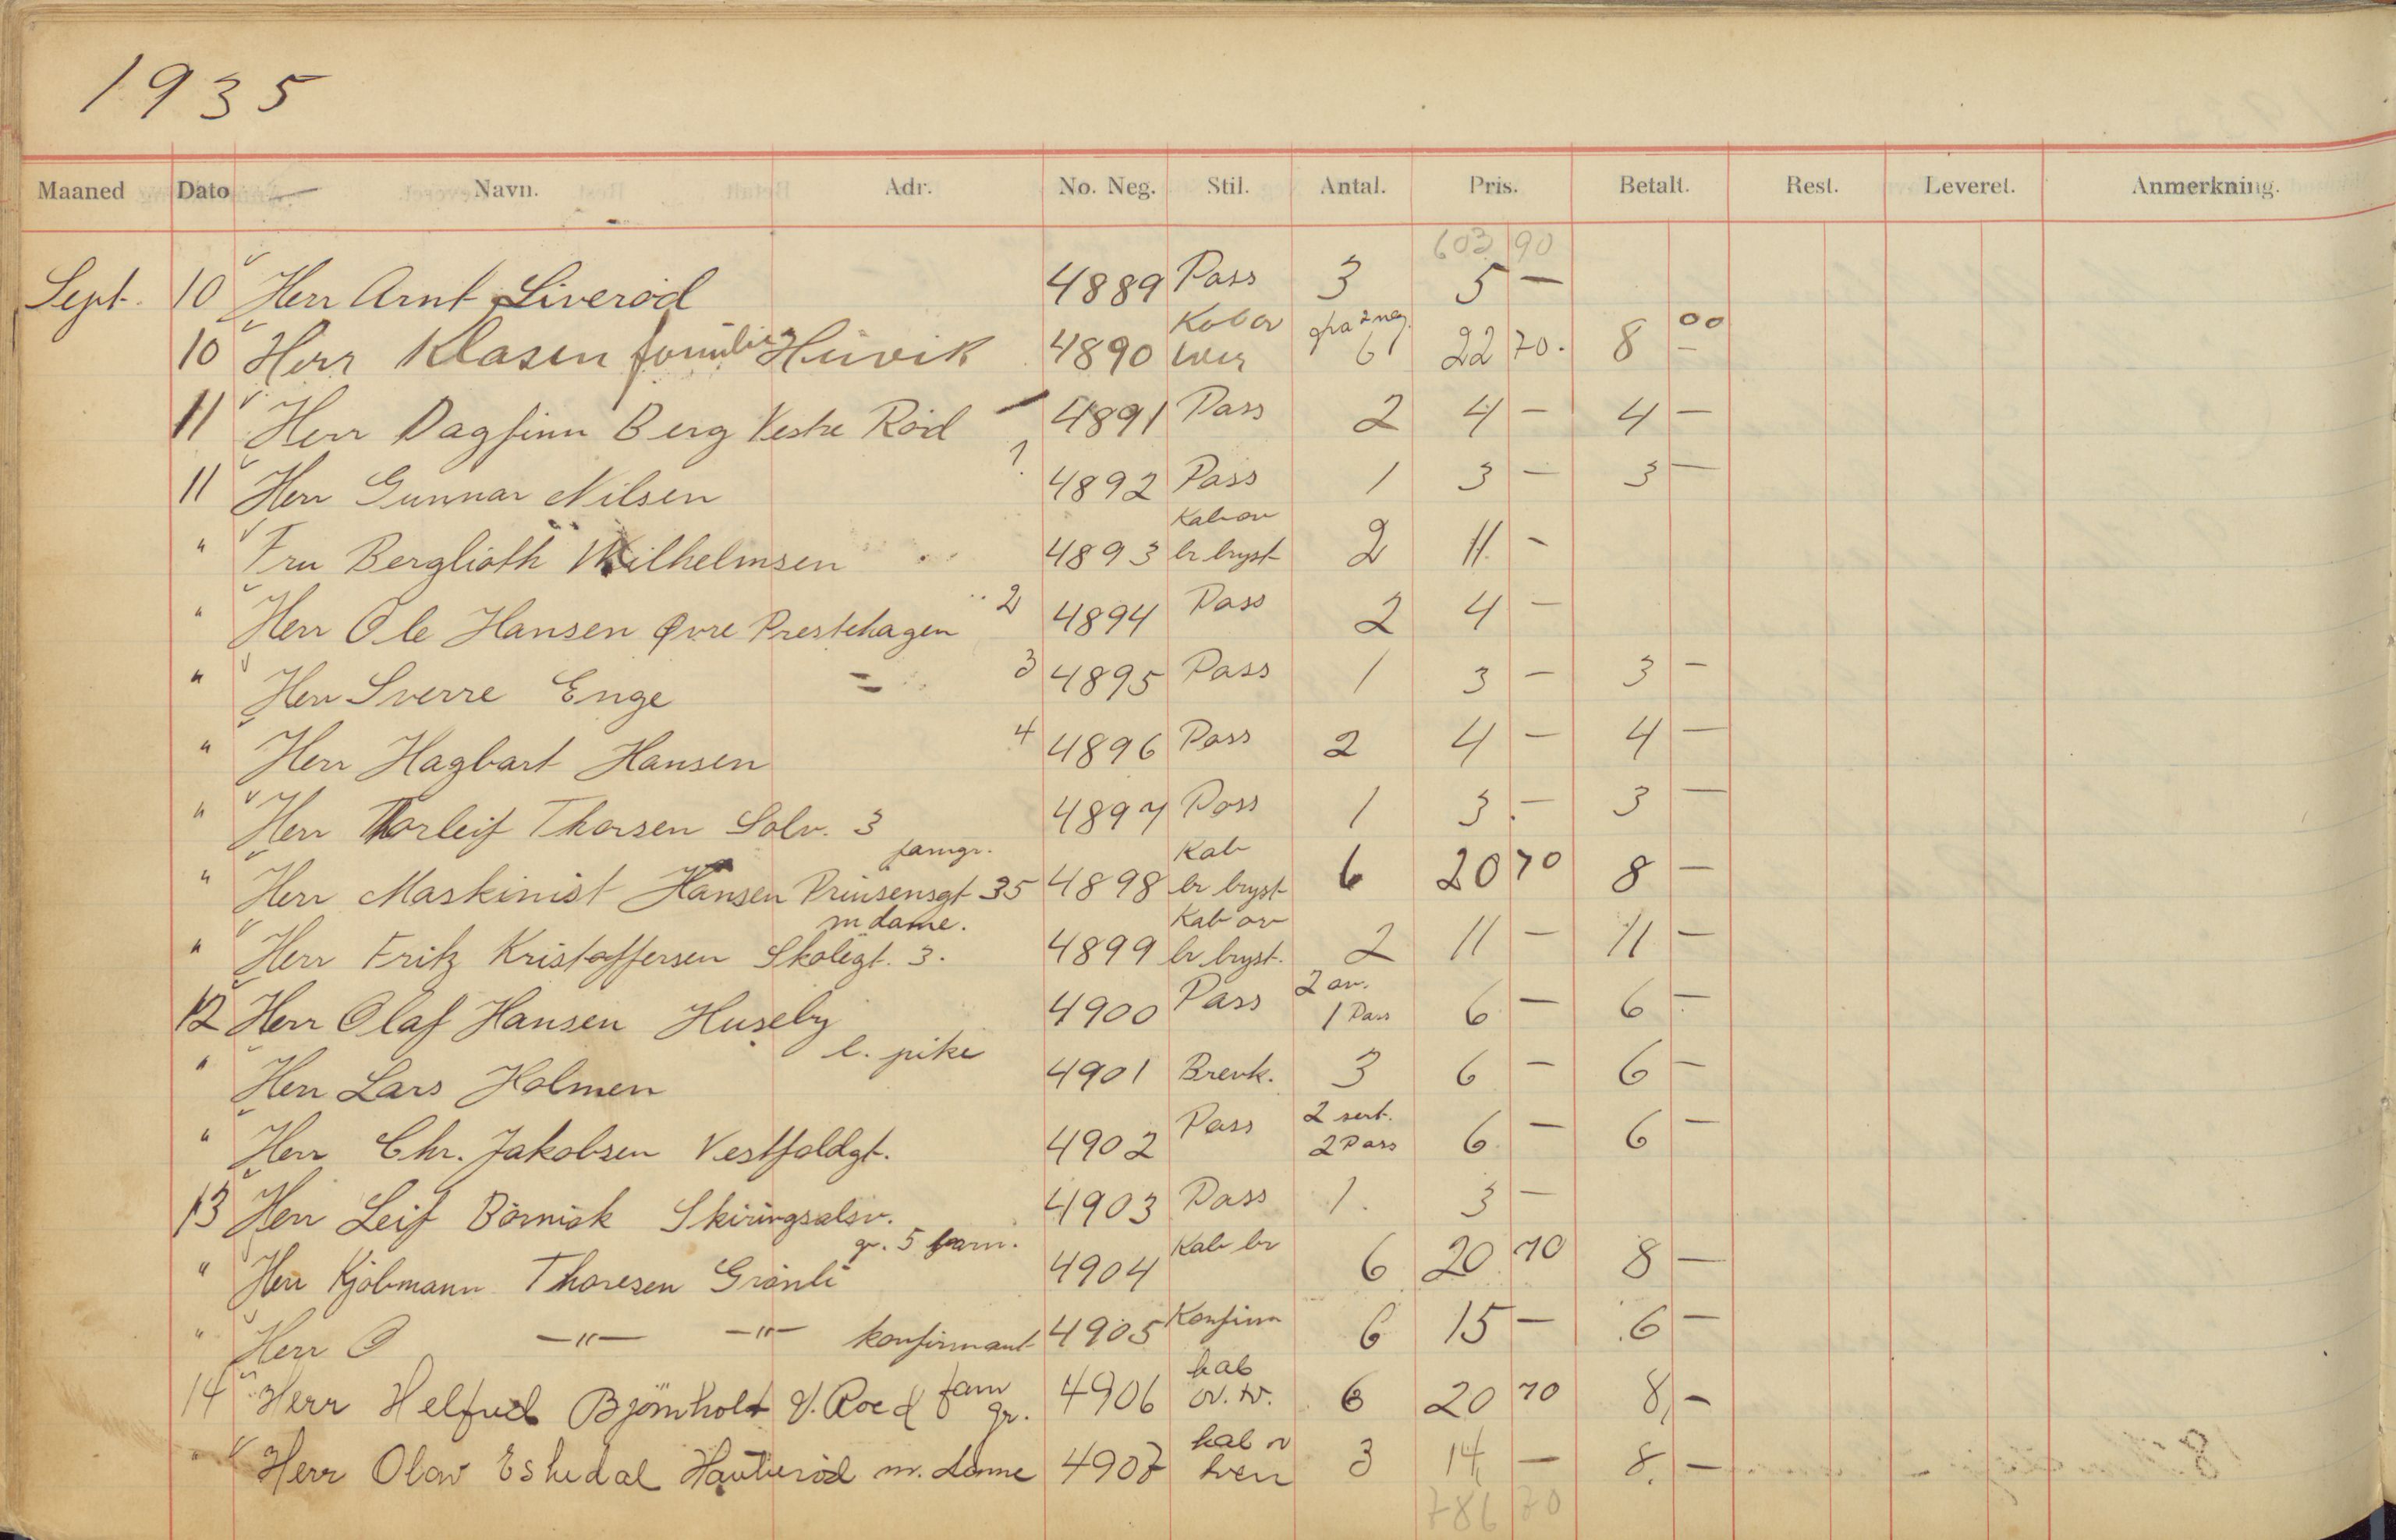 1935
Maaned Dato Navn. Adr. No. Neg. Stil. Antal. Pris. Betalt. Rest. Leveret. Anmerkning.
603 90
Sept. 10 Herr Arnt Liveröd 4889 Pass 3 5 —
10 Herr Klasen familie 4890 6 22 70. 8 00
11 Herr Dagfinn Berg Vestre Röd 4891 Pass 2 4 — 4 —
11 Herr Gunnar Nilsen 1 4892 Pass 1 3 — 3 —
" Fru Berglioth Wilhelmsen 4893 Kab ov br bryst 2 11 —
" Herr Ole Hansen Øvre Prestehagen 2 4894 Pass 2 4 —
" Herr Sverre Enge 3 4895 Pass 1 3 — 3 —
" Herr Hagbart Hansen 4 4896 Pass 2 4 — 4 —
" Herr Thorleif Thorsen Solv. 3 4897 Pass 1 3 — 3 —
" Herr Maskinist Hansen Prinsensgt 35 famgr. 4898 Kab br bryst 6 20 70 8 —
" Herr Fritz Kristoffersen Skolegt. 3. m dame. 4899 Kab ov br bryst. 2 11 — 11 —
12 Herr Olaf Hansen Huseby 4900 Pass 2 av. 1 Pass 6 — 6 —
" Herr Lars Holmen l. pike 4901 Brevk. 3 6 — 6 —
" Herr Chr. Jakobsen Vestfoldgt. 4902 Pass 2 sert. 2 Pass 6 — 6 —
13 Herr Leif Börnick Skiringsalsv. 4903 Pass 1. 3 —
" Herr Kjöbmann Thoresen Grönli gr. 5 barn. 4904 Kab br 6 20 70 8 —
" Herr O —"— —"— konfirmant 4905 Konfirm 6 15 — 6 —
14 Herr Björnholt V. Roed fam gr. 4906 kab ov. tv. 6 20 70 8, —
" Herr Olav m. dame 4907 kab 3 14, — 8. —
786 70